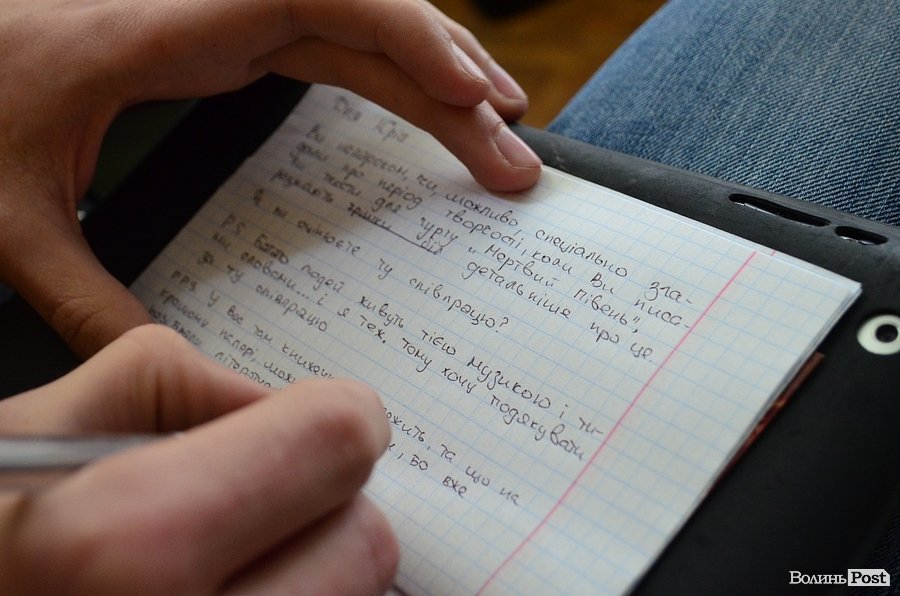 Для
Ви ненароком, чи, можливо, спеціально зга-
дали про період творчості, коли Ви писа-
ли тексти для гурту „Мертвий півень",
розкажіть трішки детальніше про це.
ви оцінюєте ту співпрацю?
P.S Багато людей живуть тією музикою і ти-
ми словами... і я теж, тому хочу подякувати
за ту співпрацю
PPS У Вас там та що на
папері, бо вже
Волинь Post